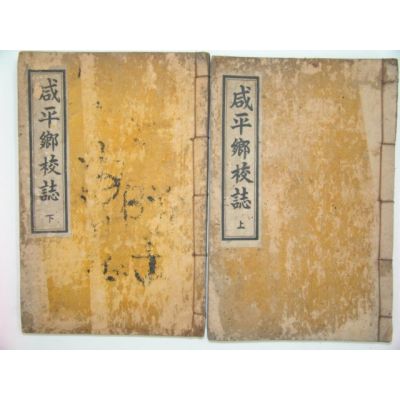 咸平鄕校誌 上
咸平鄕校誌 下